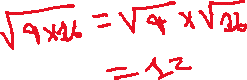 √9×16 = √9 × √16
= 12